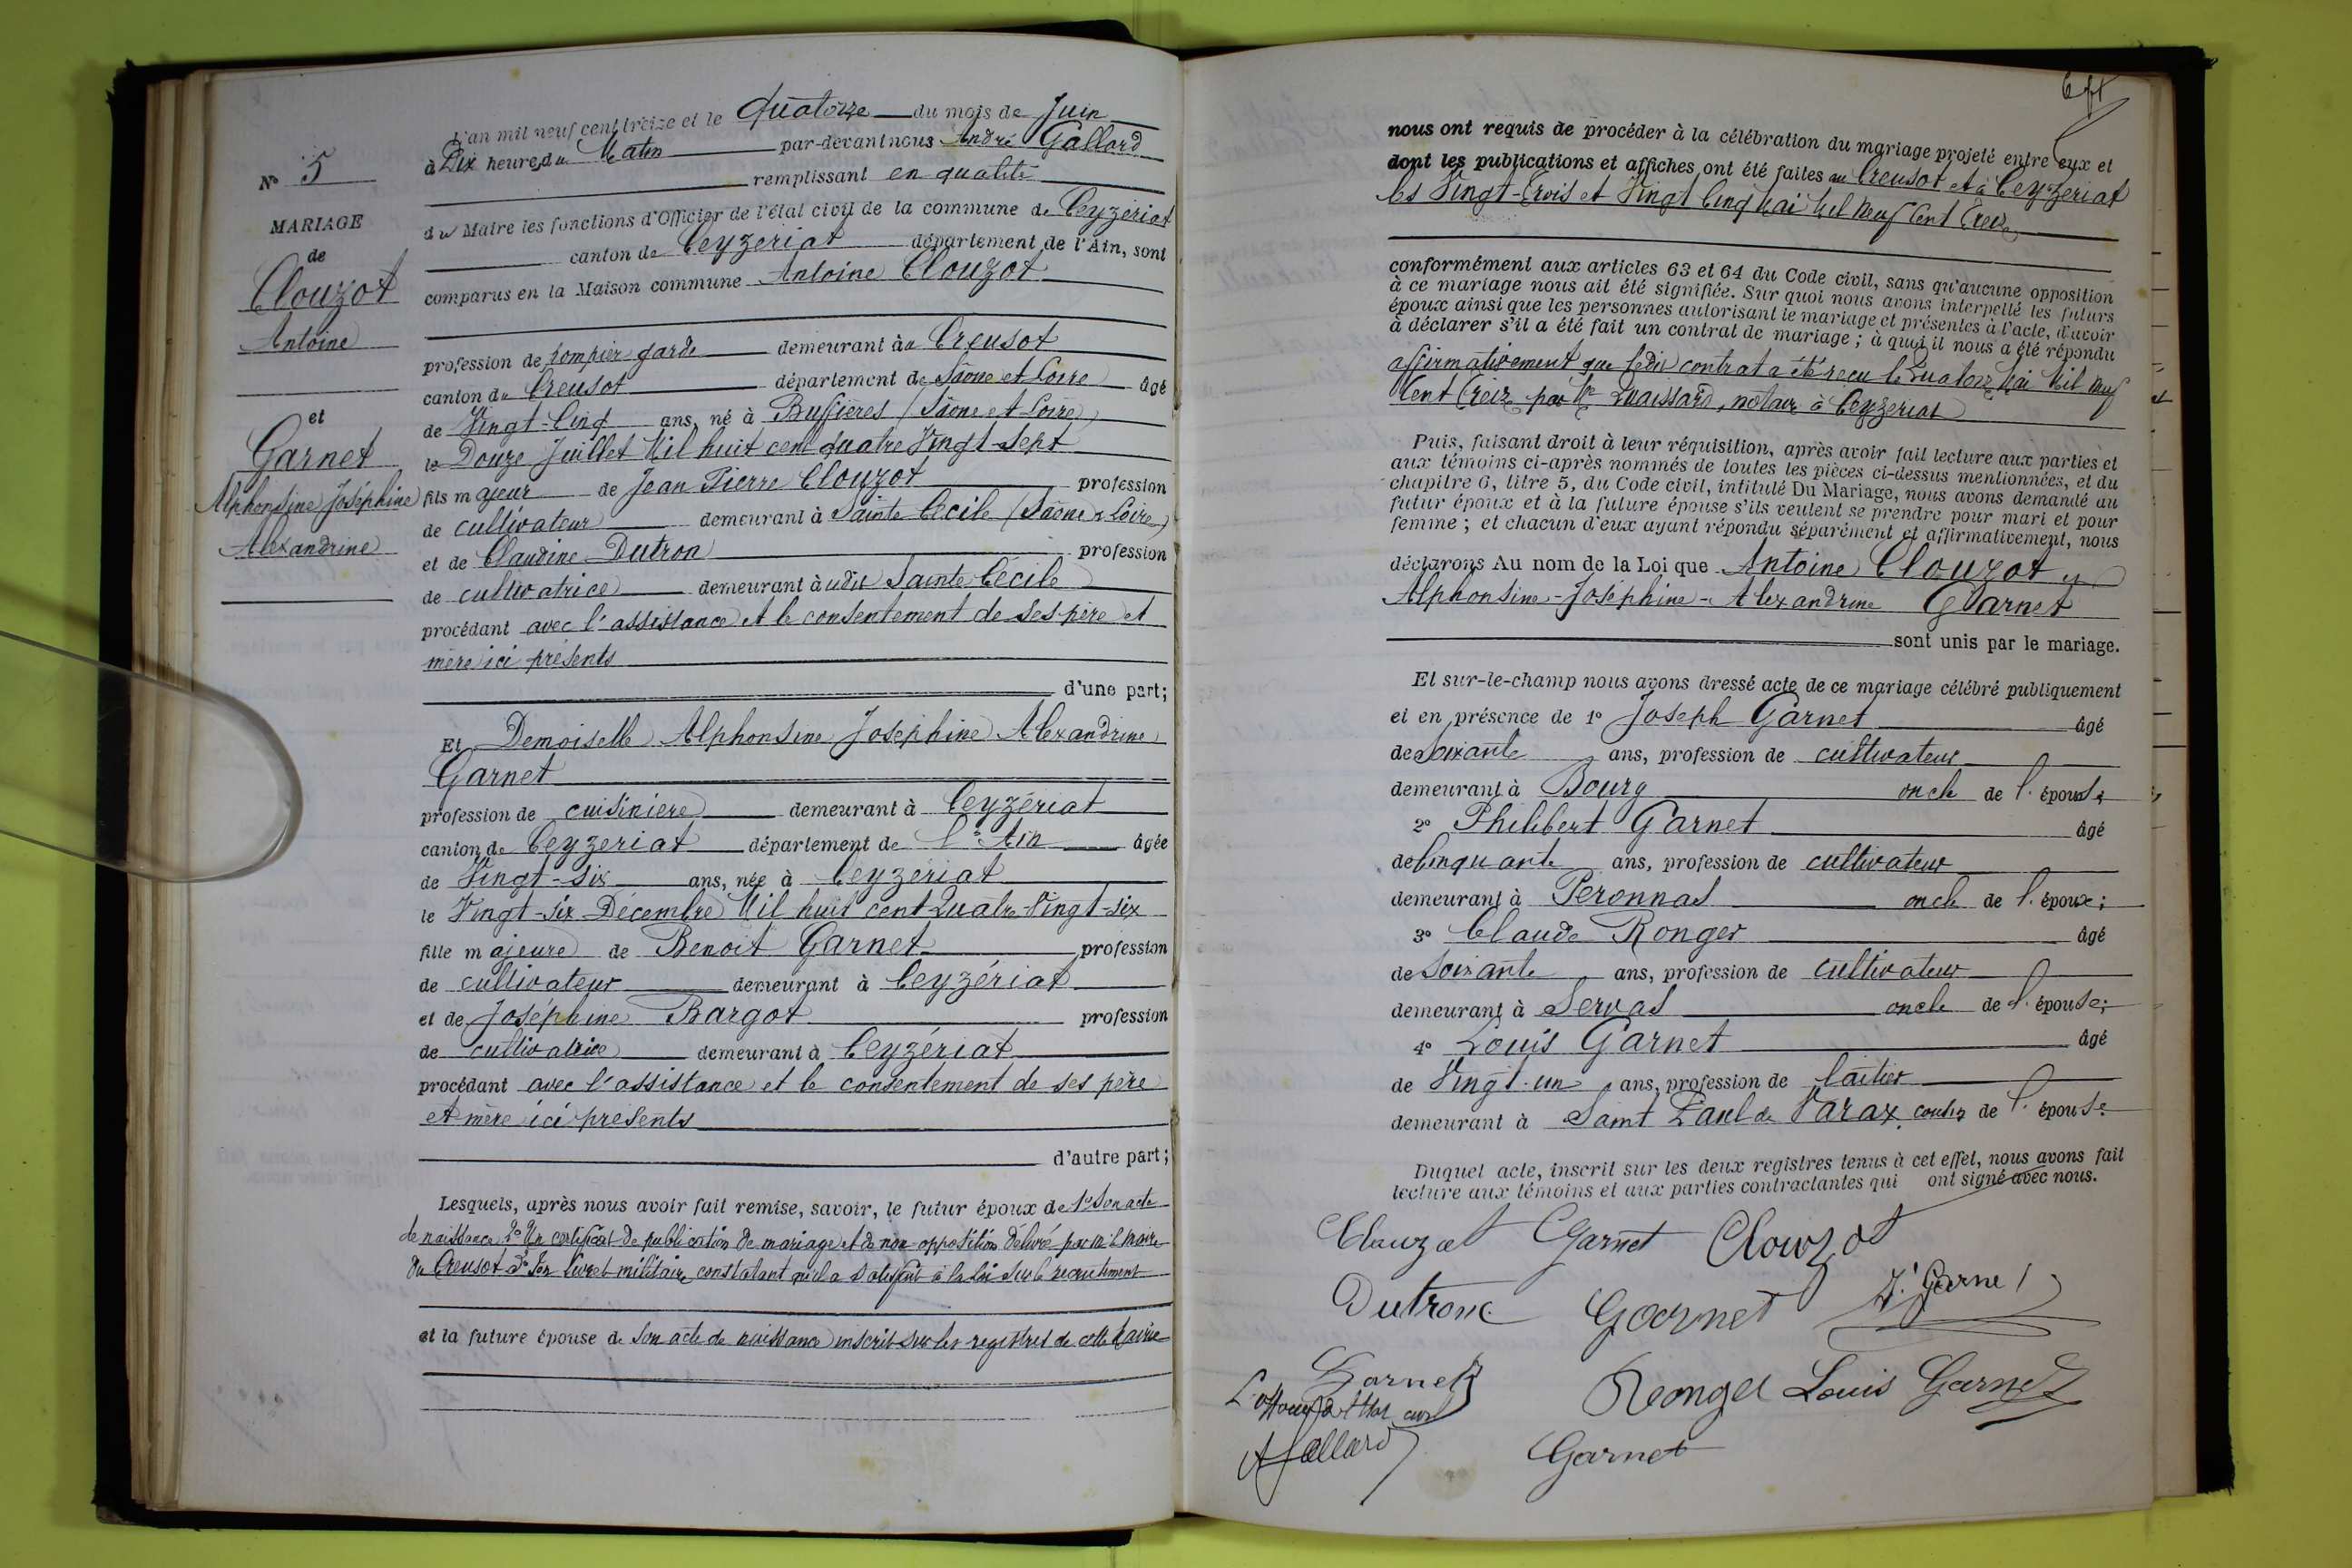 N° 5
MARIAGE
de
Clouzot
Antoine
et
Garnet
Alphonsine Joséphine
Alexandrine
L'an mil neuf cent treize et le Quatorze du mois de Juin
à Dix heures du Matin par-devant nous André Gallard
remplissant en qualité
du Maire les fonctions d'Officier de l'état civil de la commune de Ceyzériat
canton de Ceyzeriat département de l'Ain, sont
comparus en la Maison commune Antoine Clouzot
profession de pompier garde demeurant au Creusot
canton du Creusot département de Saône et Loire âgé
de Vingt-Cinq ans, né à Bussières (Saône et Loire)
le Douze Juillet Mil huit cent quatre Vingt-Sept
fils majeur de Jean Pierre Clouzot profession
de cultivateur demeurant à Sainte Cécile (Saône & Loire)
et de Claudine Dutron profession
de cultivatrice demeurant audit Sainte Cécile
procédant avec l'assistance et le consentement de ses père et
mère ici présents
d'une part;
Et Demoiselle Alphonsine Joséphine Alexandrine
Garnet
profession de cuisinière demeurant à Ceyzériat
canton de Ceyzeriat département de l'Ain âgée
de Vingt-Six ans, née à Ceyzériat
le Vingt-Six Décembre Mil huit cent Quatre-Vingt-six
fille majeure de Benoit Garnet profession
de cultivateur demeurant à Ceyzériat
et de Joséphine Bargot profession
de cultivatrice demeurant à Ceyzériat
procédant avec l'assistance et le consentement de ses père
et mère ici présents
d'autre part;
Lesquels, après nous avoir fait remise, savoir, le futur époux de 1° Son acte
de naissance 2° Un certificat de publication de mariage et de non opposition délivré par M. le Maire
du Creusot 3° Son livret militaire constatant qu'il a satisfait à la loi sur le recrutement
et la future épouse de son acte de naissance inscrit sur les registres de cette Mairie
nous ont requis de procéder à la célébration du mariage projeté entre eux et
dont les publications et affiches ont été faites au Creusot et à Ceyzériat
les Vingt-Trois et Vingt Cinq Mai Mil Neuf Cent Treize
conformément aux articles 63 et 64 du Code civil, sans qu'aucune opposition
à ce mariage nous ait été signifiée. Sur quoi nous avons interpellé les futurs
époux ainsi que les personnes autorisant le mariage et présentes à l'acte, d'avoir
à déclarer s'il a été fait un contrat de mariage ; à quoi il nous a été répondu
affirmativement que ledit contrat a été reçu le Quatorze Mai Mil Neuf
Cent Treize par Me Quaissard, notaire à Ceyzeriat
Puis, faisant droit à leur réquisition, après avoir fait lecture aux parties et
aux témoins ci-après nommés de toutes les pièces ci-dessus mentionnées, et du
chapitre 6, titre 5, du Code civil, intitulé Du Mariage, nous avons demandé au
futur époux et à la future épouse s'ils veulent se prendre pour mari et pour
femme ; et chacun d'eux ayant répondu séparément et affirmativement, nous
déclarons Au nom de la Loi que Antoine Clouzot et
Alphonsine-Joséphine-Alexandrine Garnet
sont unis par le mariage.
Et sur-le-champ nous avons dressé acte de ce mariage célébré publiquement
et en présence de 1° Joseph Garnet âgé
de Soixante ans, profession de cultivateur
demeurant à Bourg oncle de l'épouse;
2° Philibert Garnet âgé
de Cinquante ans, profession de cultivateur
demeurant à Peronnas oncle de l'épouse;
3° Claude Ronger âgé
de Soixante ans, profession de cultivateur
demeurant à Servas oncle de l'épouse;
4° Louis Garnet âgé
de Vingt-un ans, profession de laitier
demeurant à Saint Paul de Varax cousin de l'épouse.
Duquel acte, inscrit sur les deux registres tenus à cet effet, nous avons fait
lecture aux témoins et aux parties contractantes qui ont signé avec nous.
Clouzot Garnet Clouzot
Dutronc Garnet J. Garnet
Garnet Ronger Louis Garnet
L'officier de l'état civil
A Gallard Garnet